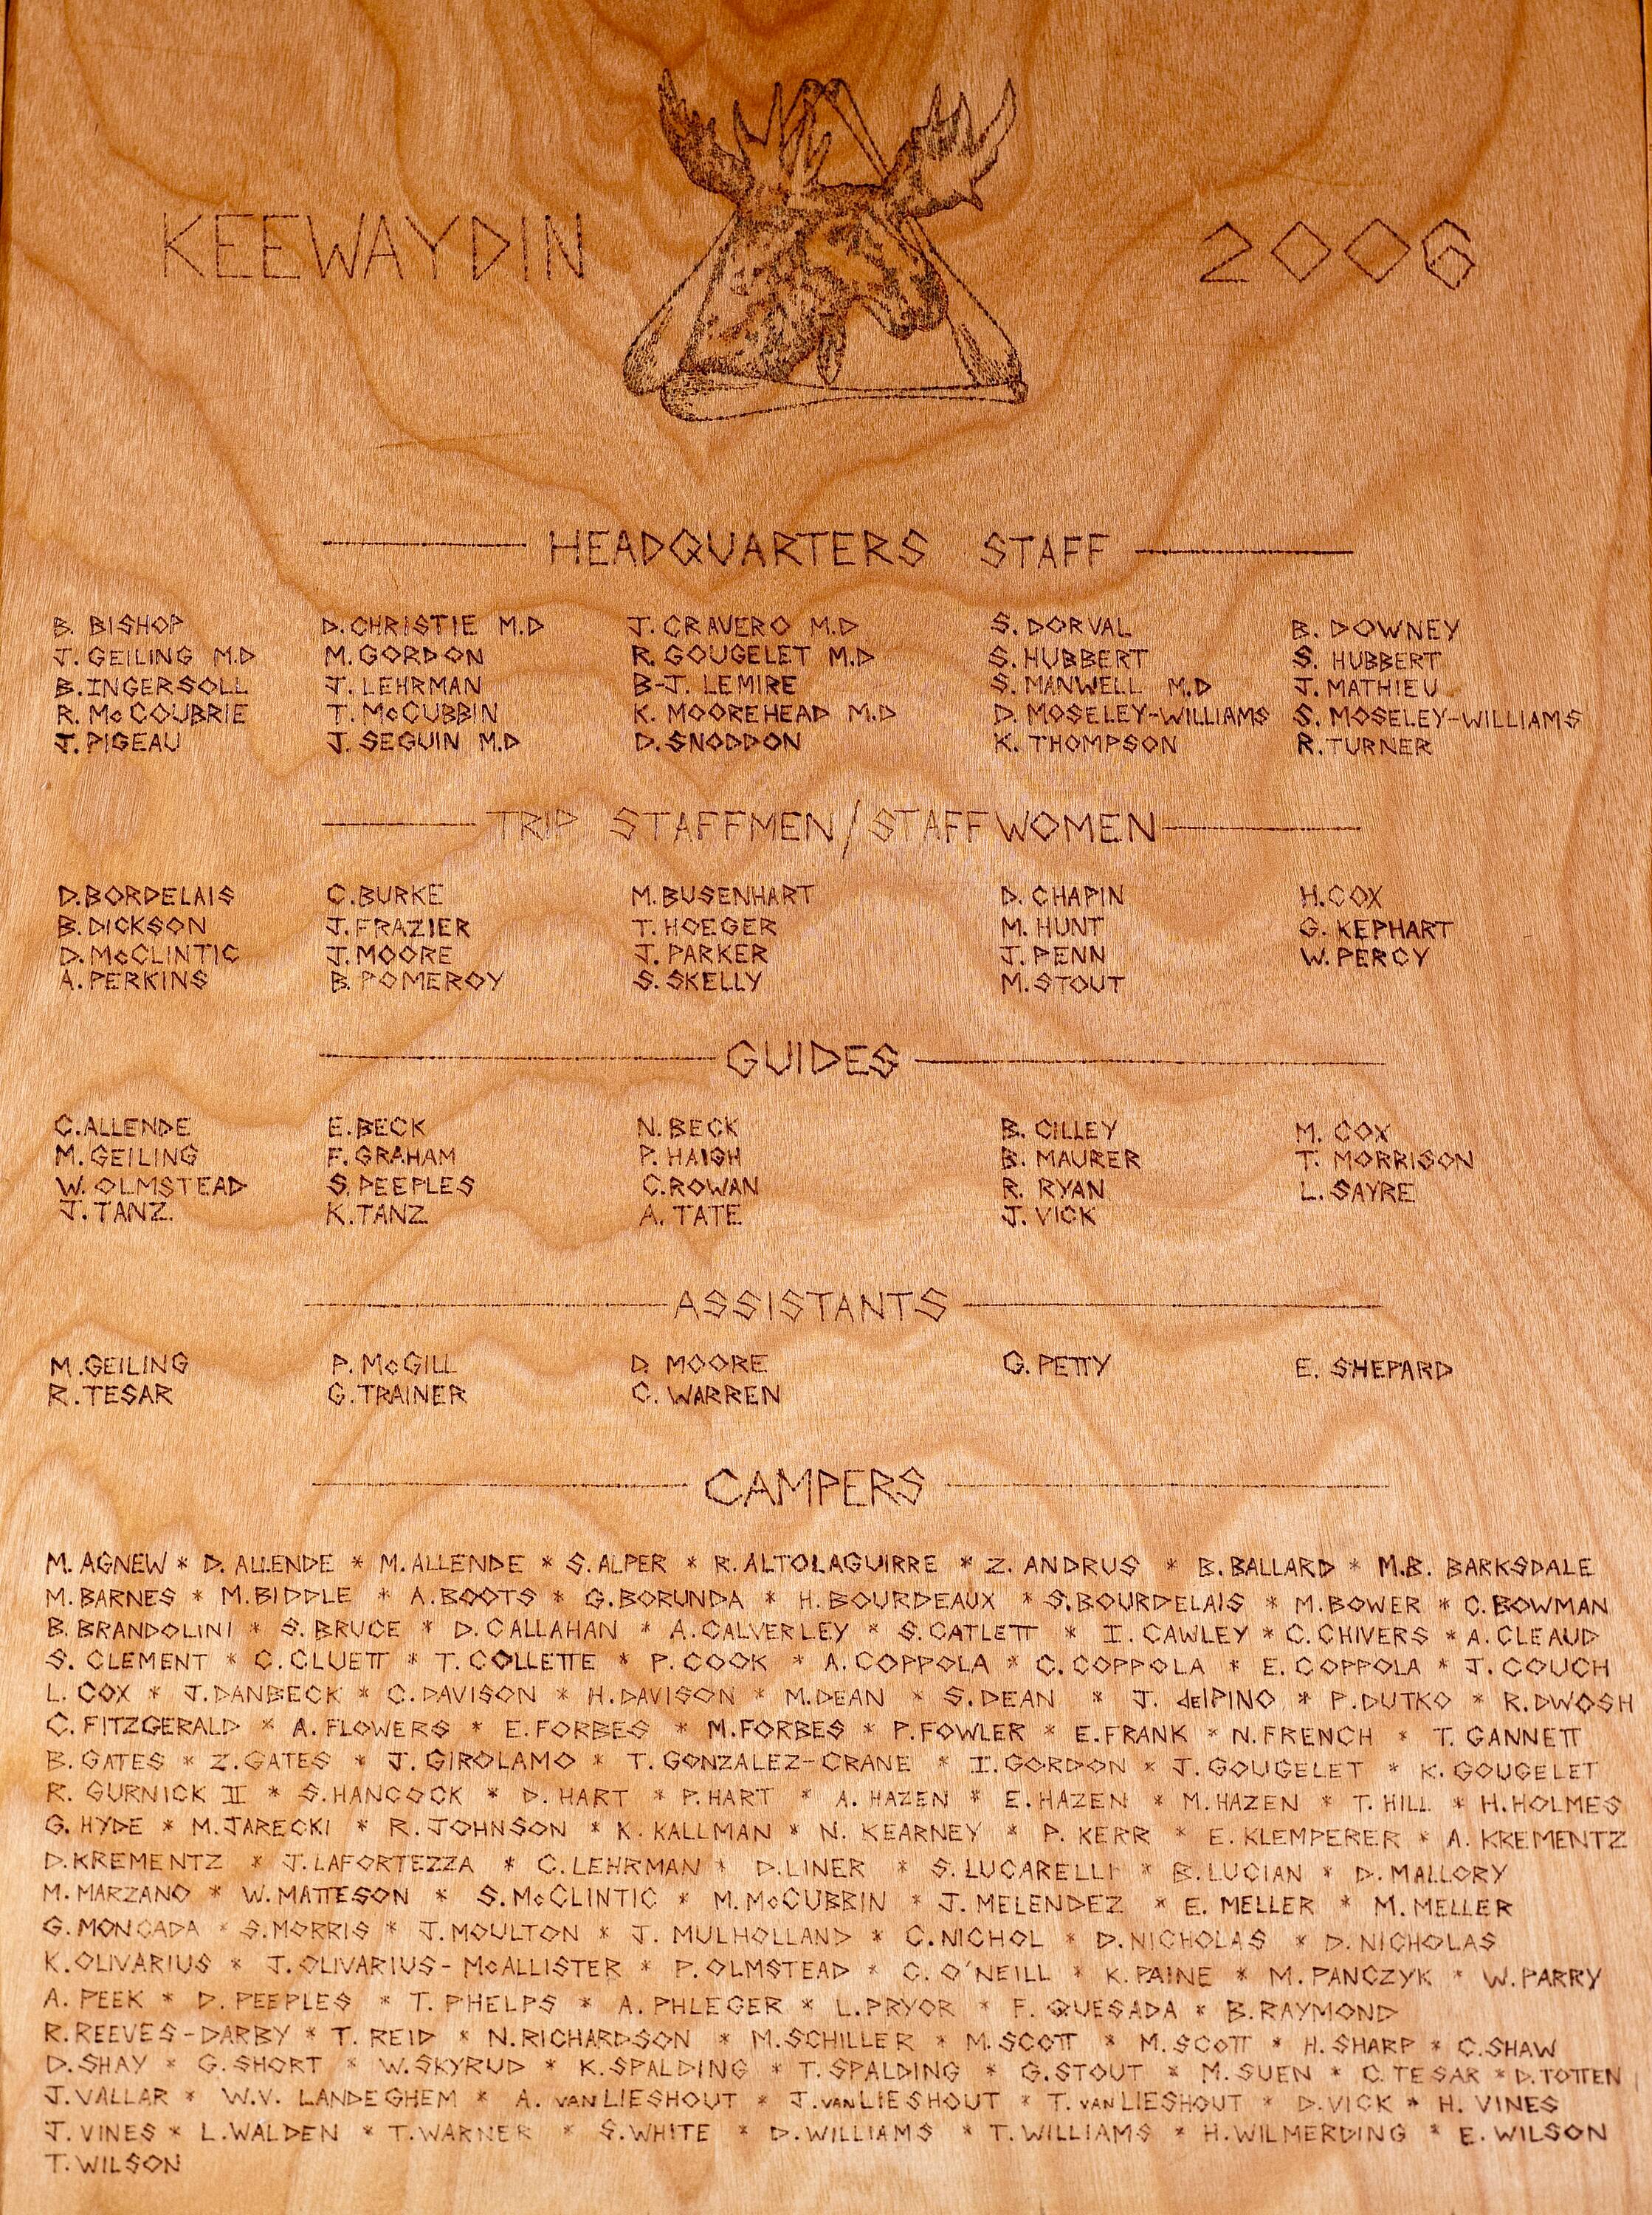 KEEWAYDIN 2006
HEADQUARTERS STAFF
B. BISHOP D. CHRISTIE M.D J. CRAVERO M.D S. DORVAL B. DOWNEY
J. GEILING M.D M. GORDON R. GOUGELET M.D S. HUBBERT S. HUBBERT
B. INGERSOLL J. LEHRMAN B-J. LEMIRE S. MANWELL M.D J. MATHIEU
R. McCOUBRIE T. McCUBBIN K. MOOREHEAD M.D D. MOSELEY-WILLIAMS S. MOSELEY-WILLIAMS
J. PIGEAU J. SEGUIN M.D D. SNODDON K. THOMPSON R. TURNER
TRIP STAFFMEN/STAFFWOMEN
D. BORDELAIS C. BURKE M. BUSENHART D. CHAPIN H. COX
B. DICKSON J. FRAZIER T. HOEGER M. HUNT G. KEPHART
D. McCLINTIC J. MOORE J. PARKER J. PENN W. PERCY
A. PERKINS B. POMEROY S. SKELLY M. STOUT
GUIDES
C. ALLENDE E. BECK N. BECK B. CILLEY M. COX
M. GEILING F. GRAHAM P. HAIGH B. MAURER T. MORRISON
W. OLMSTEAD S. PEEPLES C. ROWAN R. RYAN L. SAYRE
J. TANZ K. TANZ A. TATE J. VICK
ASSISTANTS
M. GEILING P. McGILL D. MOORE G. PETTY E. SHEPARD
R. TESAR G. TRAINER C. WARREN
CAMPERS
M. AGNEW * D. ALLENDE * M. ALLENDE * S. ALPER * R. ALTOLAGUIRRE * Z. ANDRUS * B. BALLARD * M.B. BARKSDALE
M. BARNES * M. BIDDLE * A. BOOTS * G. BORUNDA * H. BOURDEAUX * S. BOURDELAIS * M. BOWER * C. BOWMAN
B. BRANDOLINI * S. BRUCE * D. CALLAHAN * A. CALVERLEY * S. CATLETT * I. CAWLEY * C. CHIVERS * A. CLEAUD
S. CLEMENT * C. CLUETT * T. COLLETTE * P. COOK * A. COPPOLA * C. COPPOLA * E. COPPOLA * J. COUCH
L. COX * J. DANBECK * C. DAVISON * H. DAVISON * M. DEAN * S. DEAN * J. delPINO * P. DUTKO * R. DWOSH
C. FITZGERALD * A. FLOWERS * E. FORBES * M. FORBES * P. FOWLER * E. FRANK * N. FRENCH * T. GANNETT
B. GATES * Z. GATES * J. GIROLAMO * T. GONZALEZ-CRANE * I. GORDON * J. GOUGELET * K. GOUGELET
R. GURNICK II * S. HANCOCK * D. HART * P. HART * A. HAZEN * E. HAZEN * M. HAZEN * T. HILL * H. HOLMES
G. HYDE * M. JARECKI * R. JOHNSON * K. KALLMAN * N. KEARNEY * P. KERR * E. KLEMPERER * A. KREMENTZ
D. KREMENTZ * J. LAFORTEZZA * C. LEHRMAN * D. LINER * S. LUCARELLI * B. LUCIAN * D. MALLORY
M. MARZANO * W. MATTESON * S. McCLINTIC * M. McCUBBIN * J. MELENDEZ * E. MELLER * M. MELLER
G. MONCADA * S. MORRIS * J. MOULTON * J. MULHOLLAND * C. NICHOL * D. NICHOLAS * D. NICHOLAS
K. OLIVARIUS * J. OLIVARIUS-McALLISTER * P. OLMSTEAD * C. O'NEILL * K. PAINE * M. PANCZYK * W. PARRY
A. PEEK * D. PEEPLES * T. PHELPS * A. PHLEGER * L. PRYOR * F. QUESADA * B. RAYMOND
R. REEVES-DARBY * T. REID * N. RICHARDSON * M. SCHILLER * M. SCOTT * M. SCOTT * H. SHARP * C. SHAW
D. SHAY * G. SHORT * W. SKYRUD * K. SPALDING * T. SPALDING * G. STOUT * M. SUEN * C. TESAR * D. TOTTEN
J. VALLAR * W.V. LANDEGHEM * A. vanLIESHOUT * J. vanLIESHOUT * T. vanLIESHOUT * D. VICK * H. VINES
J. VINES * L. WALDEN * T. WARNER * S. WHITE * D. WILLIAMS * T. WILLIAMS * H. WILMERDING * E. WILSON
T. WILSON